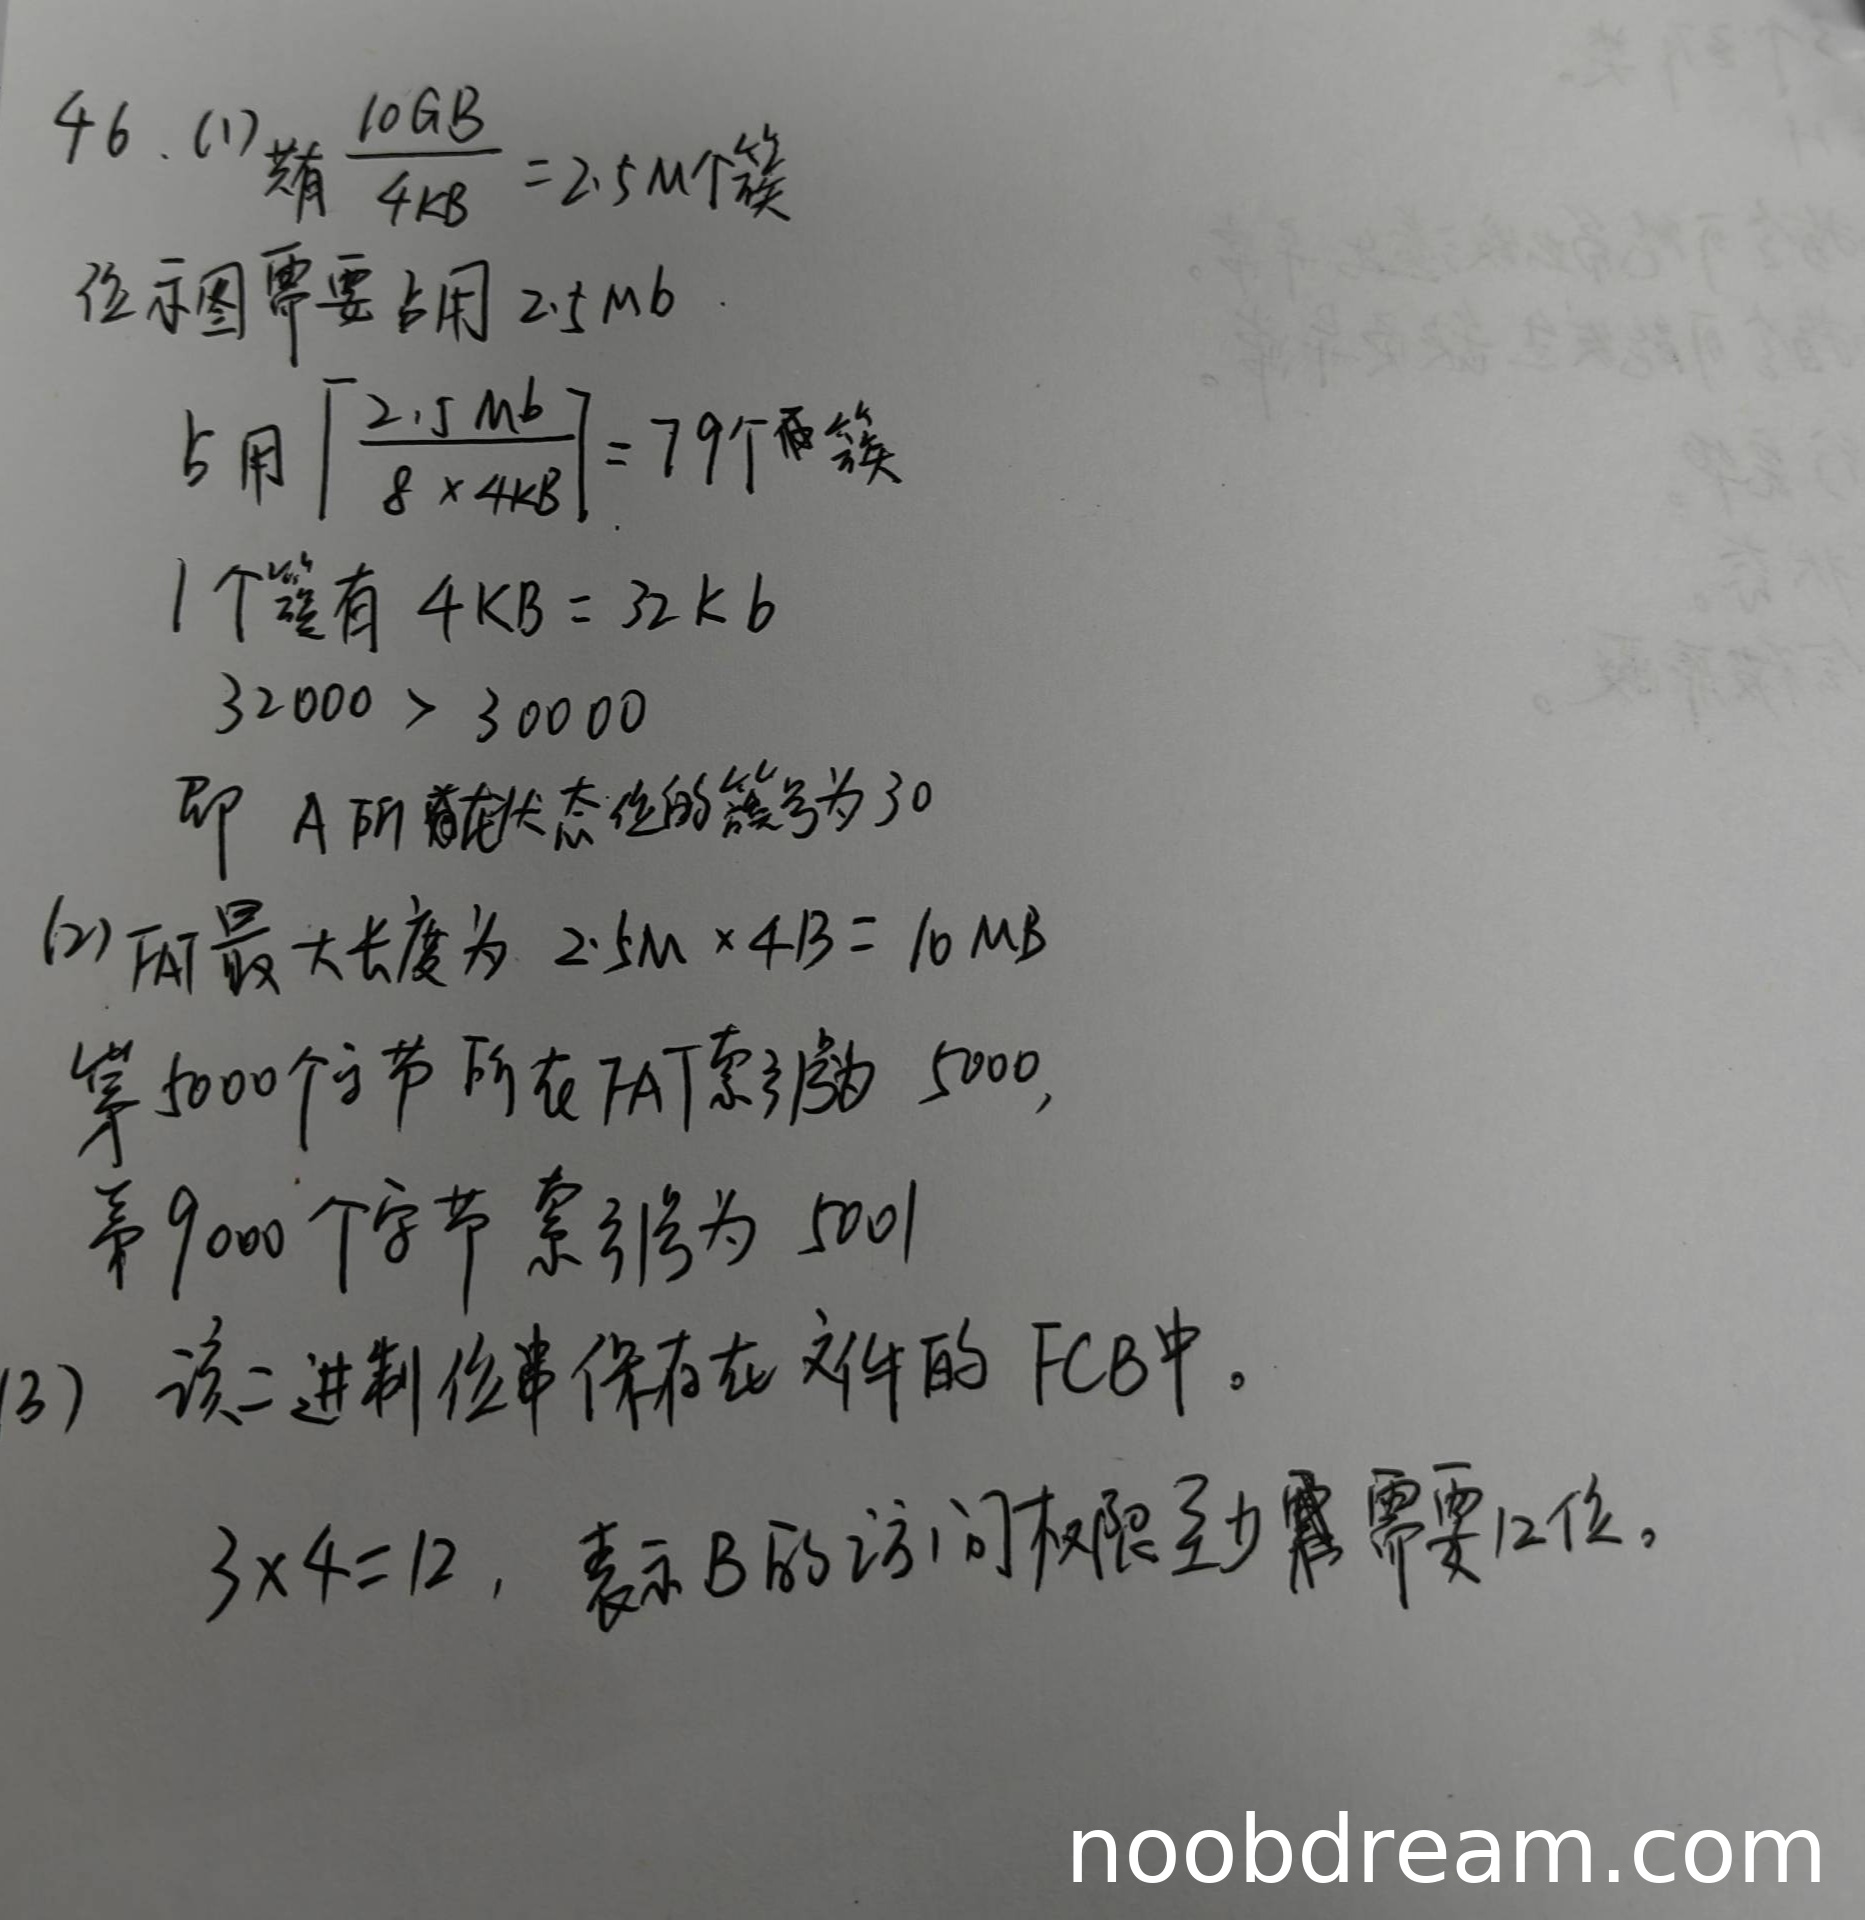 46.(1) 共有 10GB / 4KB = 2.5M个簇
位示图需要占用 2.5Mb.
占用⌈2.5Mb / 8×4KB⌉=79个簇
1个簇有 4KB = 32Kb
32000 > 30000
即 A所在状态位的簇号为30
(2) FAT最大长度为 2.5M×4B = 10MB
第5000个字节所在FAT索引号为 5000,
第9000个字节索引号为 5001
(3) 该二进制位串保存在文件的 FCB中。
3×4=12, 表示B的访问权限至少需要12位。
noobdream.com